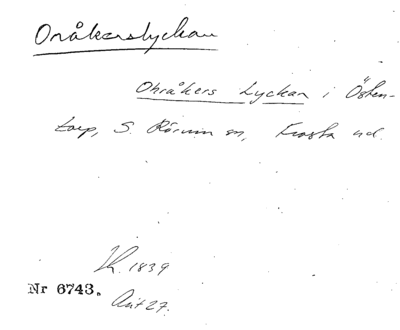 Onåkerslyckan
Ohråkers Lyckan i Östen-
torp, S. Rörum sn, Frosta hd.
1839
Nr 6743.
Akt 27.